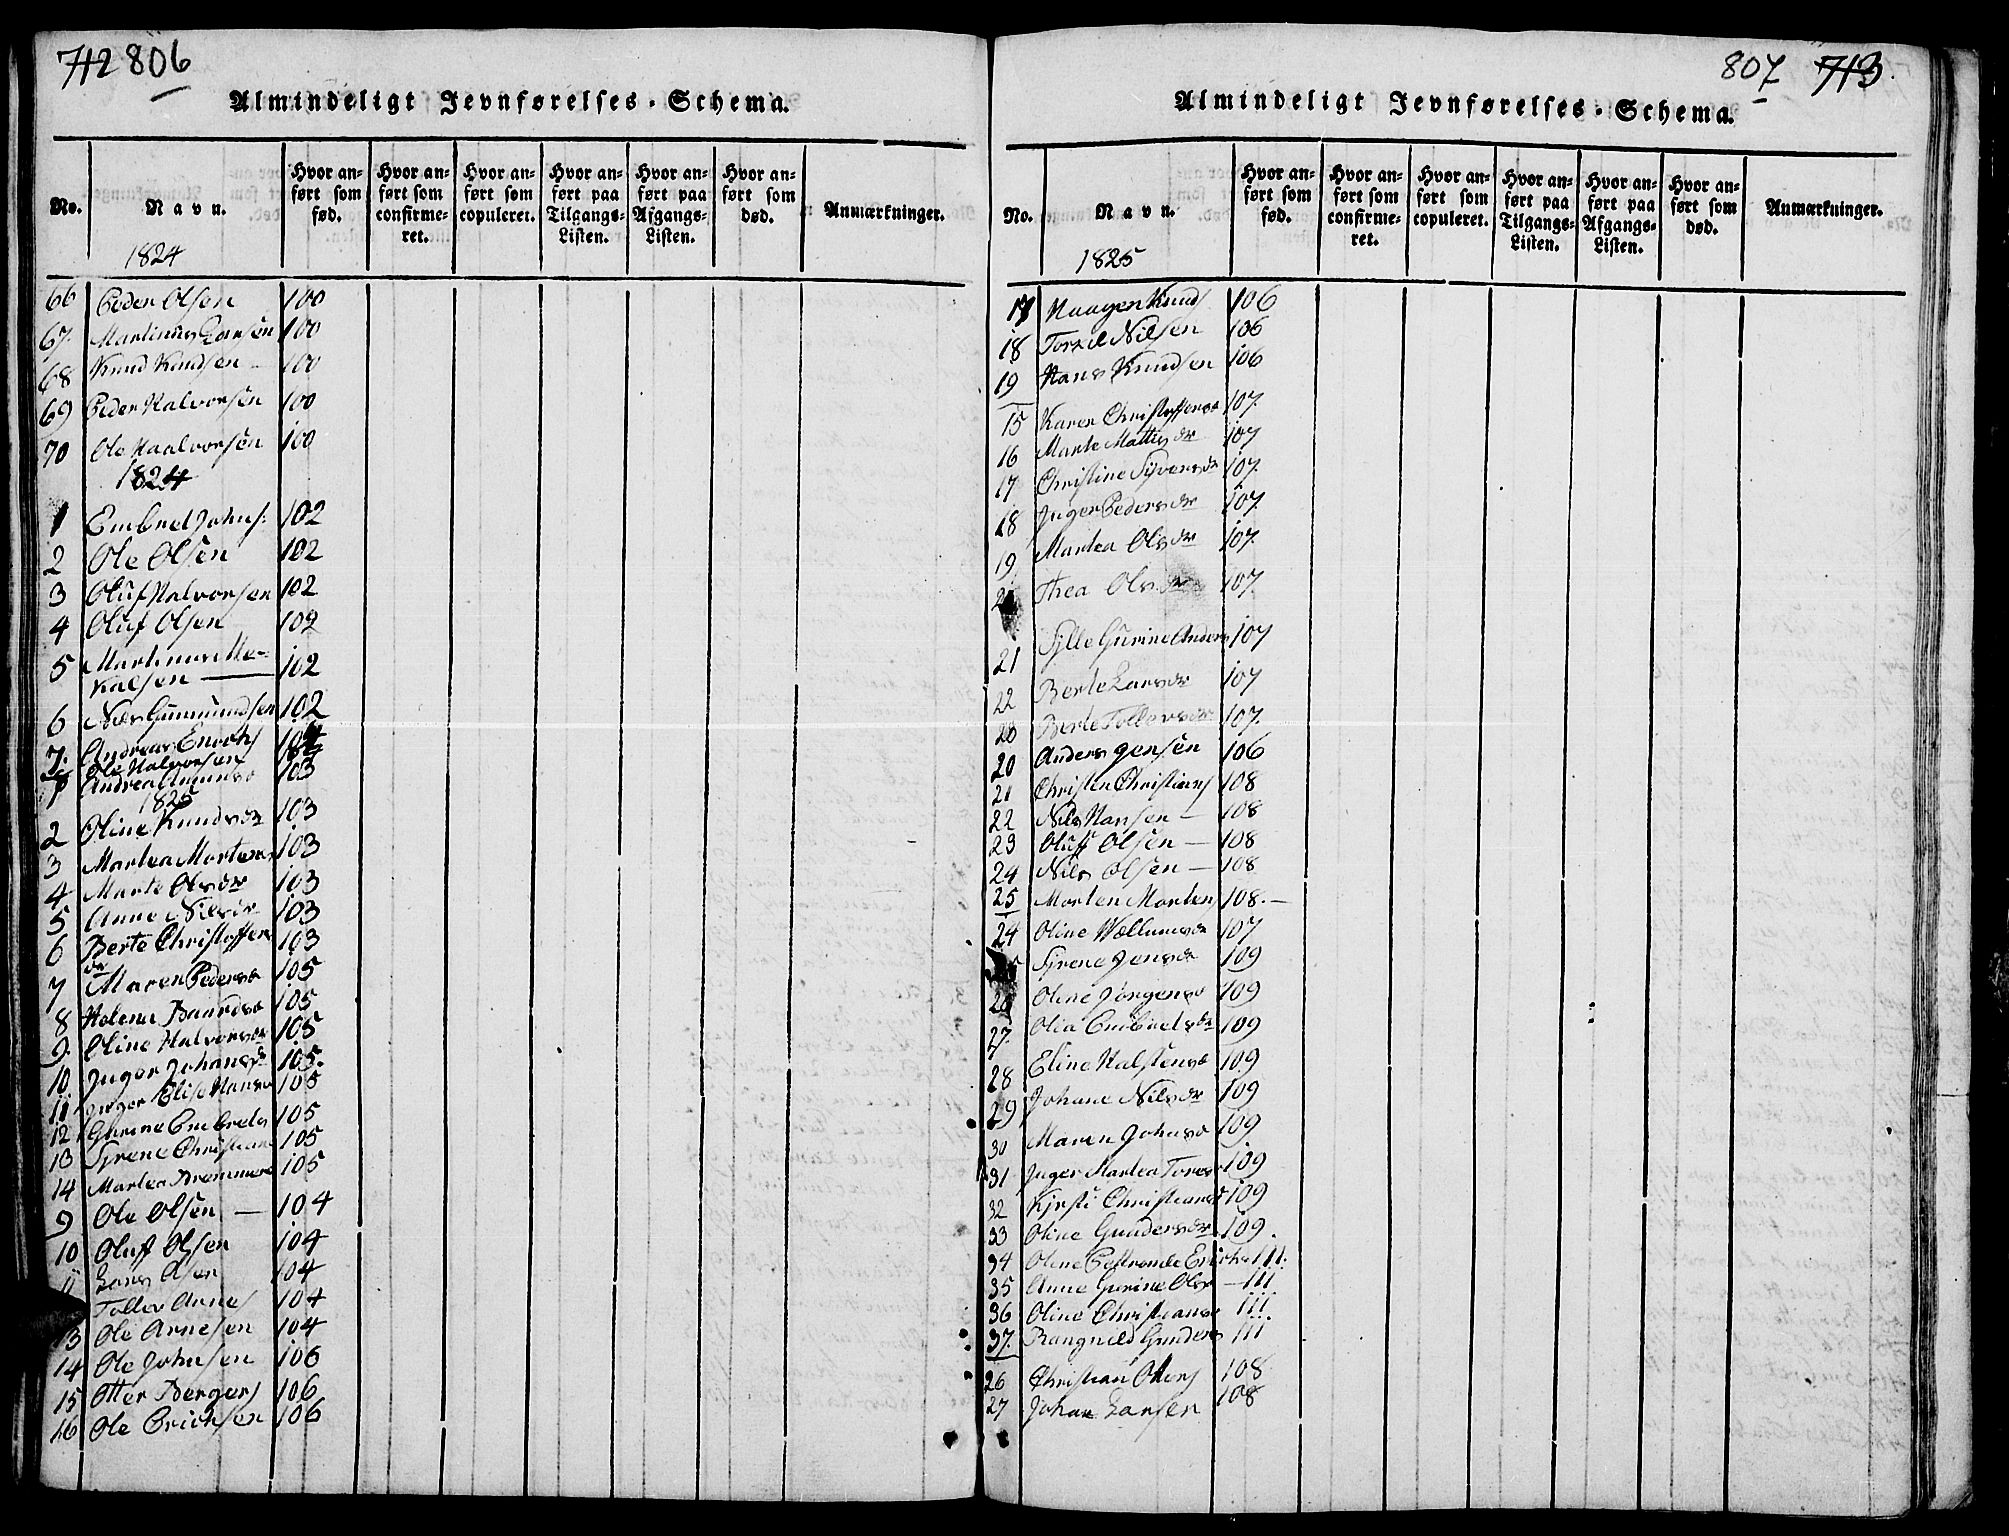 712 806
Almindeligt Jevnførelses-Schema.
No. Navn. Hvor anført som fød. Hvor anført som confirmeret. Hvor anført som copuleret. Hvor anført paa Tilgangs-Listen. Hvor anført paa Afgangs-Listen. Hvor anført som død. Anmærkninger.
1824
66 Peder Olsen 100
67. Martinus Larsen 100
68 Knud Knudsen 100
69 Peder Halvorsen 100
70 Ole Haalvorsen 100
1824
1 Embret Johns: 102
2 Ole Olsen 102
3 Oluf Halvorsen 102
4 Oluf Olsen 102
5 Martinus Mekalsen 102
6 Nils Gunnundsen 102
7. Andreas Enochs
Ole Halvorsen
1 Andrea Amunds 103
1825
2 Oline Knudsdr 103
3 Martea Mortens 103
4 Marte Olsdr 103
5 Anne Nilsdr 103
6 Berte Christoffers dr 103
7 Maren Pedersd 105
8 Helene Baardsd 105
9. Oline Halvorsdr 105
10 Inger Johansdr 105.
11. Inger Elise Hansd 105
12 Gurine Embrets 105
13 Sirene Christians 105
14 Martea 105
9 Ole Olsen — 104
10 Oluff Olsen 104
11 Lars Olsen 104
Tollev Arnes 104
13 Ole Arnesen 104
14 Ole Johnsen 106
15 Otter Bergers 106
16 Ole Erichsen 106
807 713.
Almindeligt Jevnførelses-Schema.
No. Navn. Hvor anført som fød. Hvor anført som confirmeret. Hvor anført som copuleret. Hvor anført paa Tilgangs-Listen. Hvor anført paa Afgangs-Listen. Hvor anført som død. Anmærkninger.
1825
17 Haagen Knuds 106
18 Torkel Nilsen 106
19 Hans Knudsen 106
15 Karen Christoffersd 107.
16 Marte Mattisdr 107
17 Christine Syversdr 107.
18 Inger Pedersdr 107.
19 Martea Olsdr 107.
Thea Olsdr 107.
21 Sille Gurine Anders 107
22 Berte Larsdr 107
23 Berte Tollevsdr 107.
20 Anders Jensen 106
21 Christen Christians 108
22 Nils Hansen — 108
23 Oluff Olsen — 108
24 Nils Olsen — 108
25 Morten Mortens 108.—
24 Oline Wællumsdr 107
Sirene Jensdr 109
26 Oline Jörgensd 109
27. Olia Embretsdr 109
28 Eline Halstensd 109
29 Johane Nilsdr 109
30 Maren Johnsd 109
31 Inger Martea Tores 109
32 Kjrsti Christiansd 109
33 Oline Gundersdr 109.
34 Oline 111.
35 Anne Gurine Ols — 111
36 Oline Christiansd 111.
37. Rangnild Gunders 111
26 Christian Olters 108
27 Johan Larsen 108